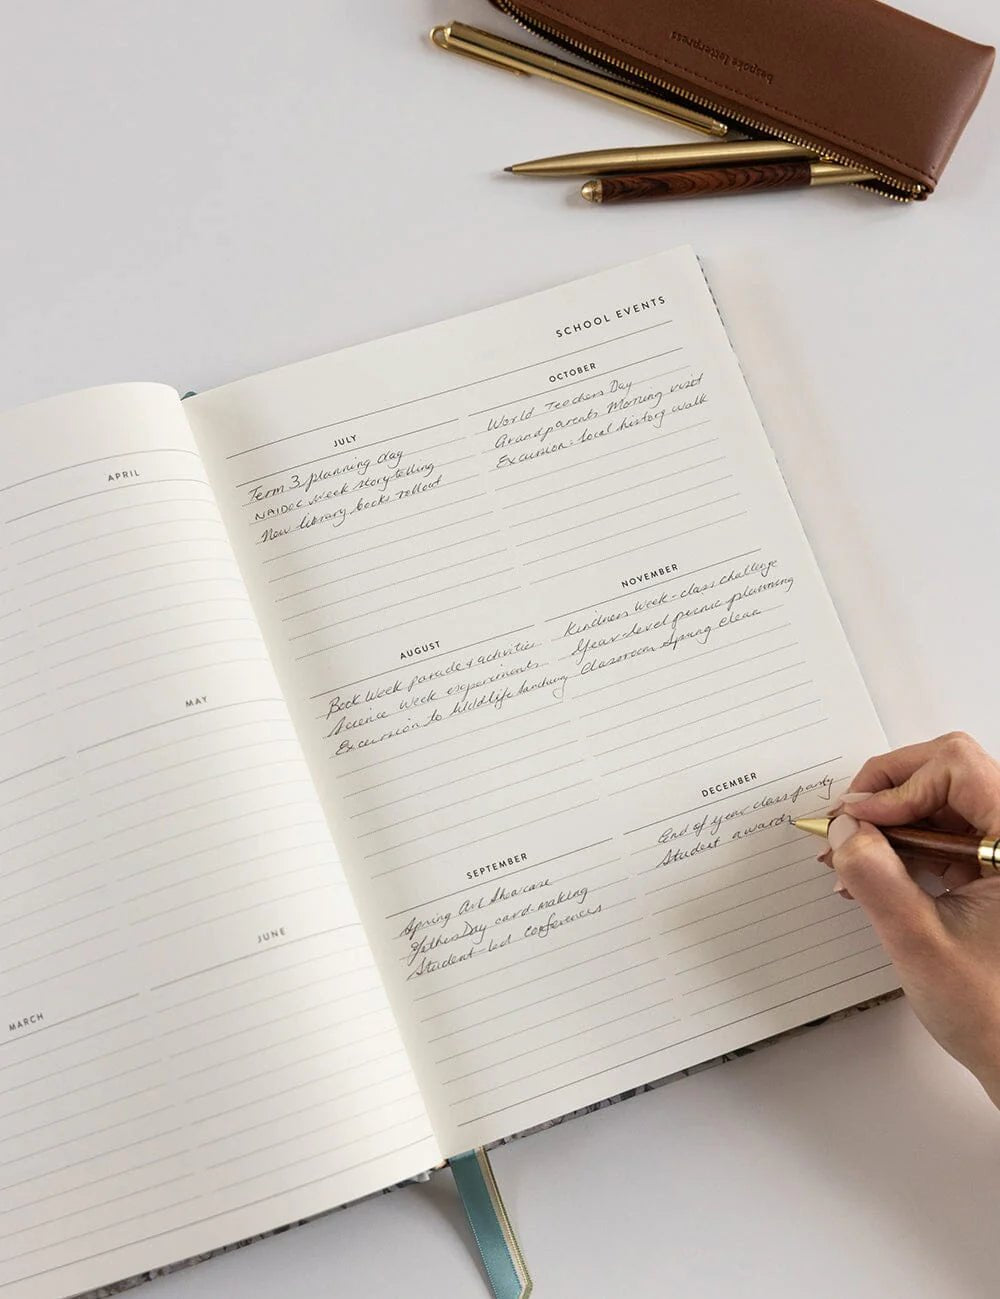 bespoke letterpress
SCHOOL EVENTS
APRIL
MAY
JUNE
MARCH
JULY
Term 3 planning day
NAIDOC week storytelling
New library books rollout
AUGUST
Book Week parade & activities
Science Week experiments
Excursion to Wildlife Sanctuary
SEPTEMBER
Spring Art Showcase
Father's Day card-making
Student-led conferences
OCTOBER
World Teachers Day
Grandparents Morning visit
Excursion: local history walk
NOVEMBER
Kindness Week - class challenge
Year-level picnic planning
Classroom Spring clean
DECEMBER
End of year class party
Student awards